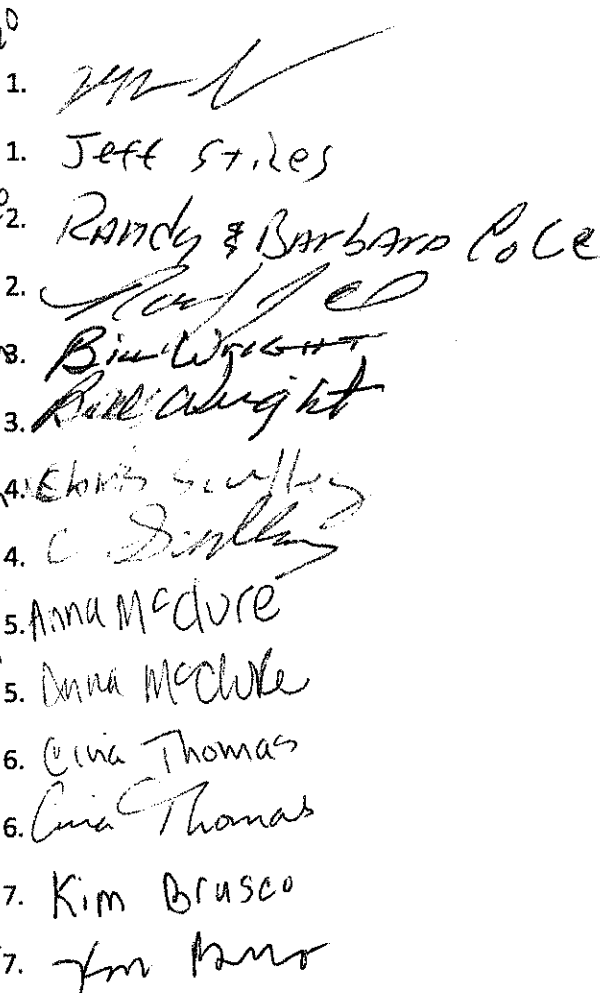 1.
1. Jeff Stiles
2. Randy & Barbara Cole
2.
3. Bill Wright
3. Bill Wright
4.
4. C
5. Anna McClure
5. Anna McClure
6. Cina Thomas
6. Cina Thomas
7. Kim Brusco
7. Kim